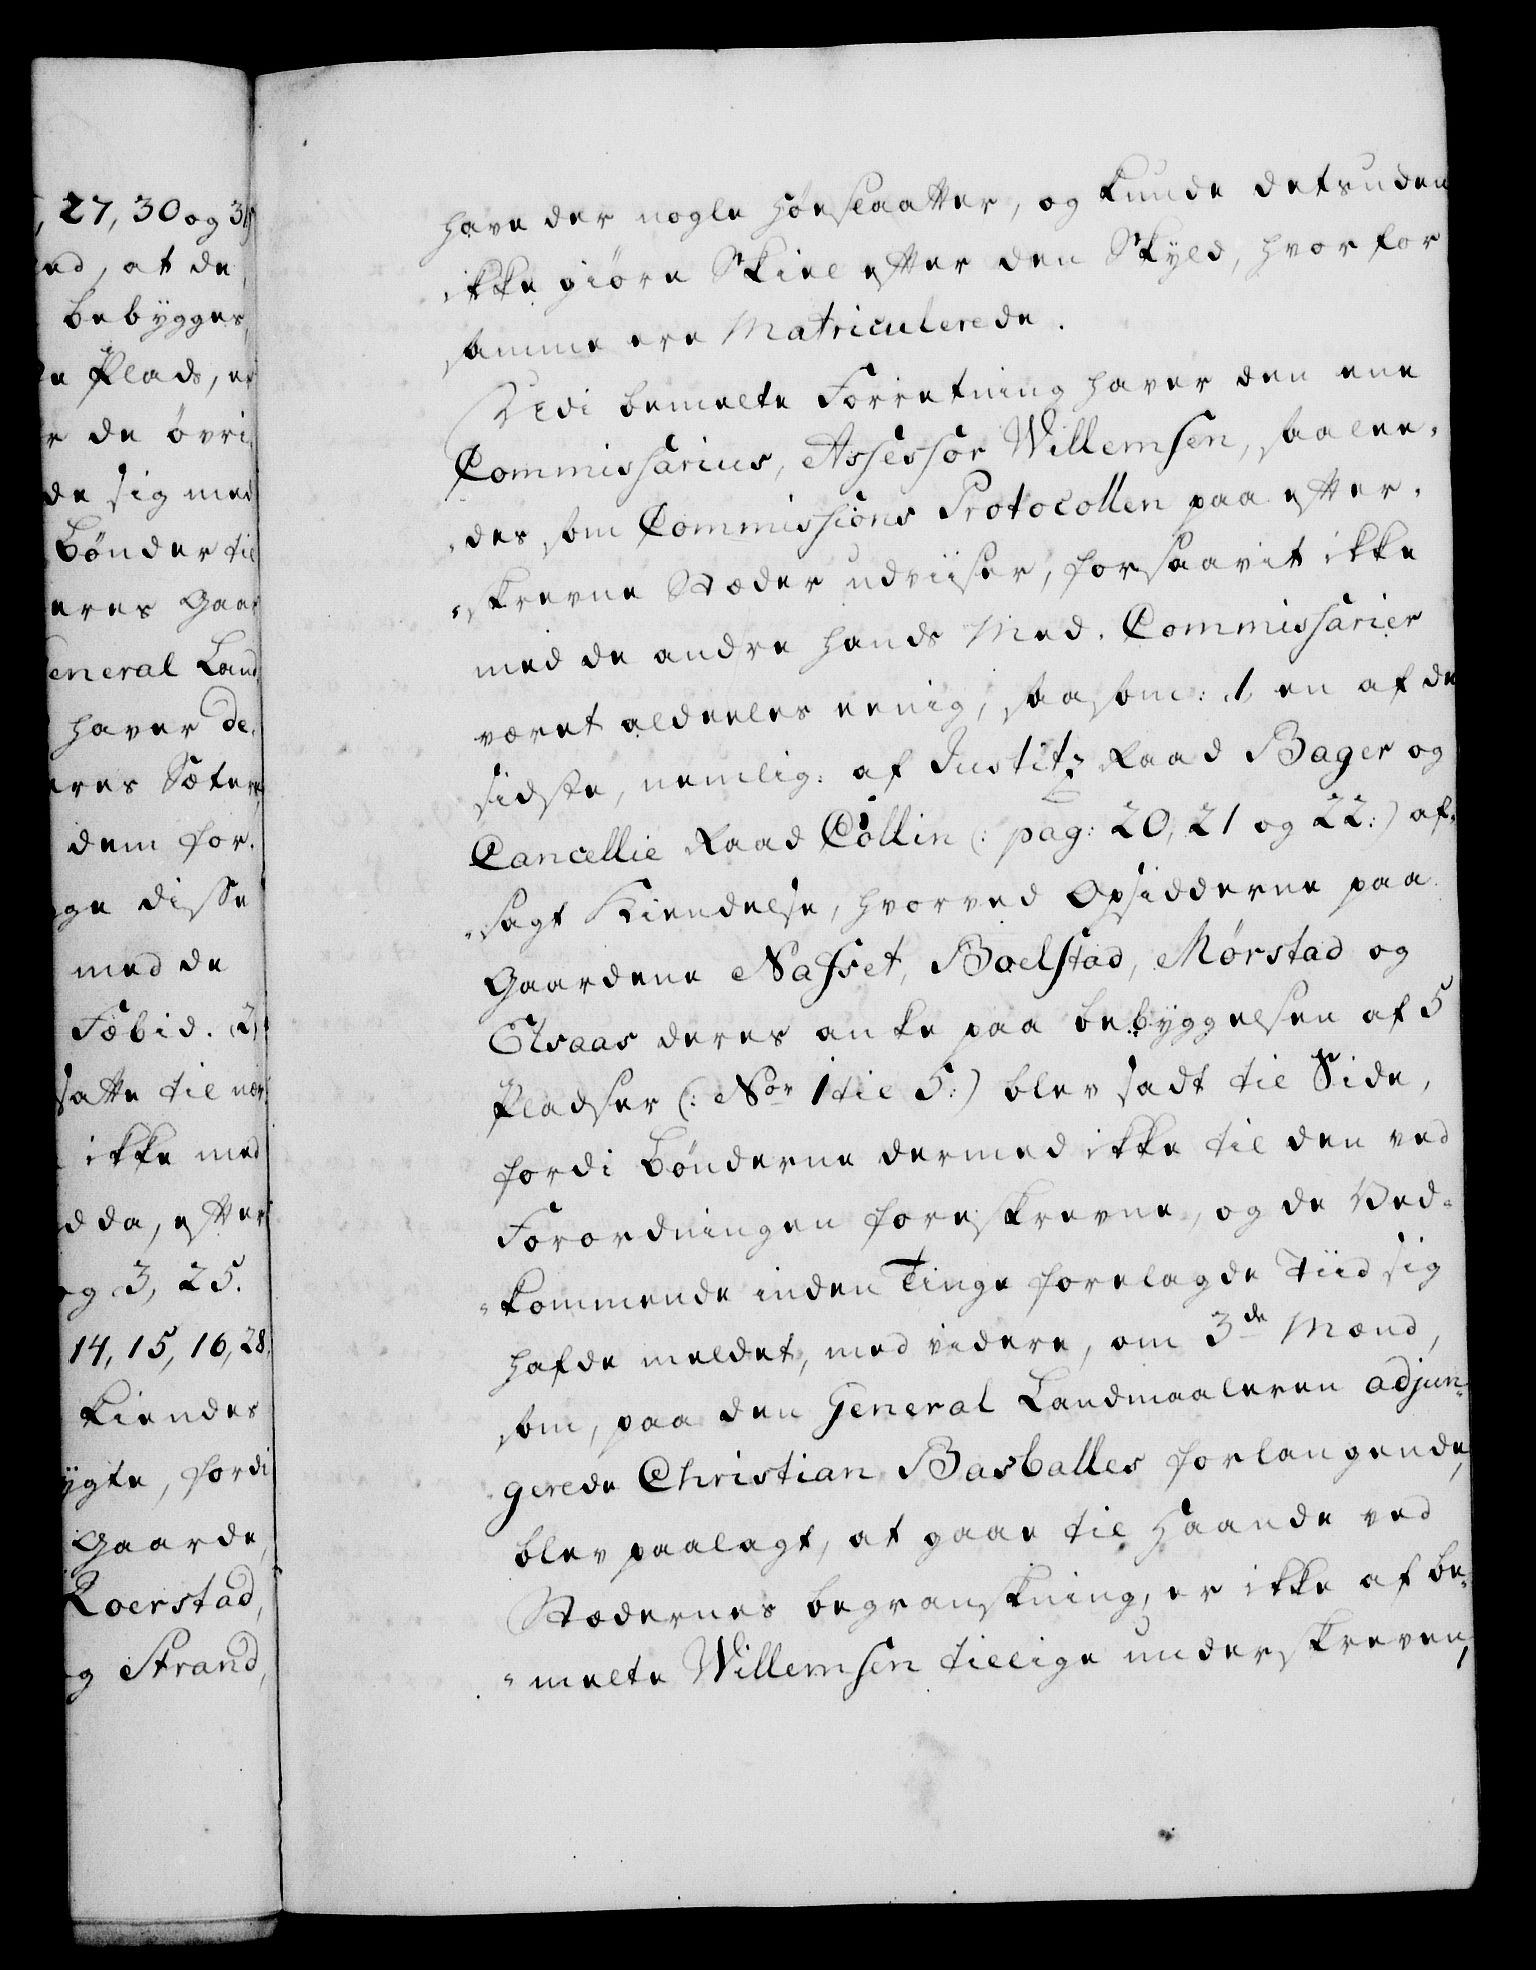 , 27, 30 og 31
ed, at de
bebygges,
e Plads, er
r de øvri
de sig med
Bønder til
eres Gaar
eneral Land
haver de,
eres Sæter
dem for,
ge disse
med de
Fæbid. 2,
satte til nær
ikke med
dda, efter
g 3, 25.
14, 15, 16, 28,
kiendes
ygte, fordi
Gaarde,
Roerstad,
g Strand,
have der nogle Høeslaatter, og kunde desuden
ikke giøre Skiel efter den Skyld, hvorfor
samme ere Matriculerede.
Udi bemelte Forretning haver den ene
Commissarius, Assessor Willemsen, saalee-
des som Commissions Protocollen paa efter-
skrevne Stæder udviiser, forsaavit ikke
med de andre hands Med-Commissarier
været aldeeles eenig, saasom: 1, en af de
sidste, nemlig: af Justitz Raad Bager og
Cancellie Raad Collin (: pag: 20, 21 og 22:) af-
sagt Kiendelse, hvorved Opsidderne paa
Gaardene Nafset, Boelstad, Mørstad og
Elsaas deres anke paa bebyggelsen af 5
Pladser (: Nor 1 til 5:) blev sadt til Side,
fordi Bønderne dermed ikke til den ved
Forordningen foreskrevne, og de Ved-
kommende inden Tinge forelagde Tiid sig
hafde meldet, med videre, om 3de Mænd,
som, paa den General Landmaaleren adjun-
gerede Christian Basballes forlangende,
blev paalagt, at gaae til Haande ved
Stædernes begranskning, er ikke af be-
melte Willemsen tillige underskreven,